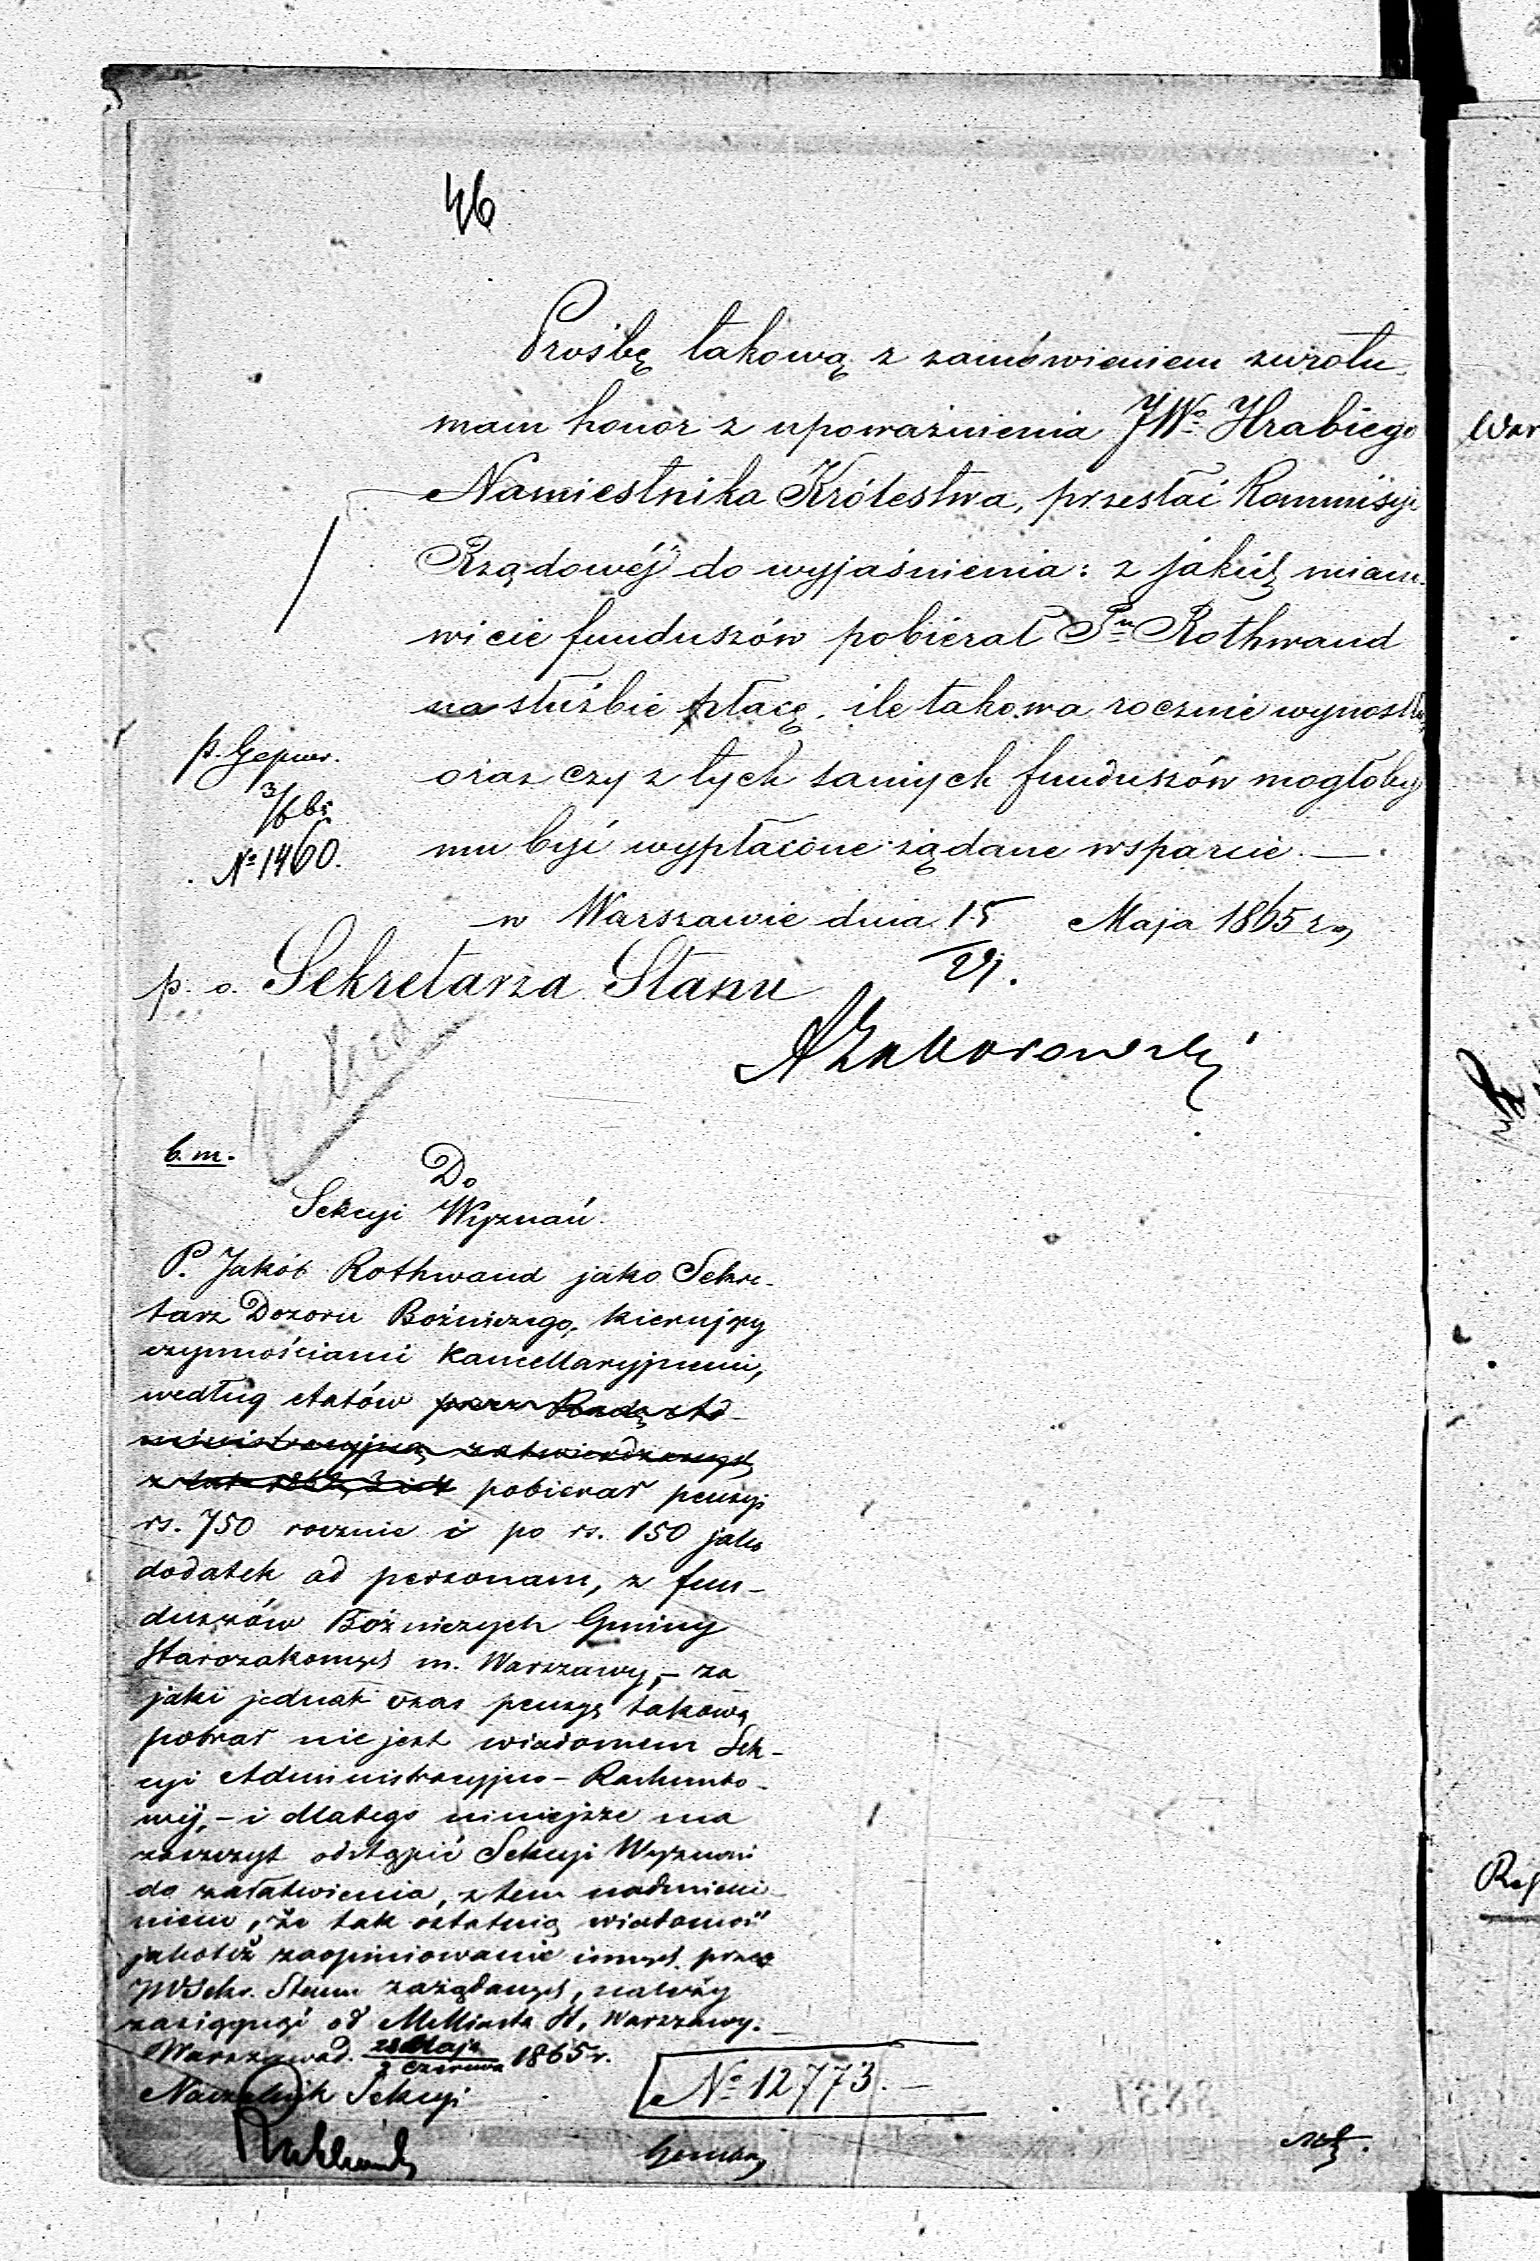 46
Prośbę takową z zamówieniem zwrotu
mam honor z upoważnienia JWo Hrabiego
Namiestnika Królestwa, przesłać Kommissyi
Rządowéj do wyjaśnienia: z jakich miano-
wicie funduszów pobiérał Pn Rothwand
na służbie płacę, ile takowa rocznie wynosiła,
oraz czy z tych samych funduszów mogłoby
mu być wypłacone żądane wsparcie. —
w Warszawie dnia 15/27. Maja 1865 r.
p. o. Sekretarza Stanu
AZaborowski
3/6 65
No 1460.
b. m.
Do
Sekcyi Wyznań.
P. Jakób Rothwand jako Sekre-
tarz Dozoru Bożniczego, kierujący
czynnościami kancellaryjnemi,
według etatów przez Radę Ad-
ministracyjną zatwierdzonych
z lat 1862, 3 i 4 pobierał pensyi
rs. 750 rocznie i po rs. 150 jako
dodatek ad personam, z fun-
duszów Bóżniczych Gminy
Starozakonnych m. Warszawy, – za
jaki jednak czas pensyę takową
pobrał nie jest wiadomem Sek-
cyi Administracyjno-Rachunko-
wéj, – i dlatego niniejsze ma
zaszczyt odstąpić Sekcyi Wyznań
do załatwienia, z tem nadmienie-
niem, że tak ostatnią wiadomość
jakoteż zaopiniowanie innych przez
JW Sekr. Stanu zażądanych, należy
zasięgnąć od Mtu Miasta St. Warszawy.
Warszawa d. 22 Maja/3 Czerwca 1865 r.
Naczelnik Sekcyi
No 12773. —